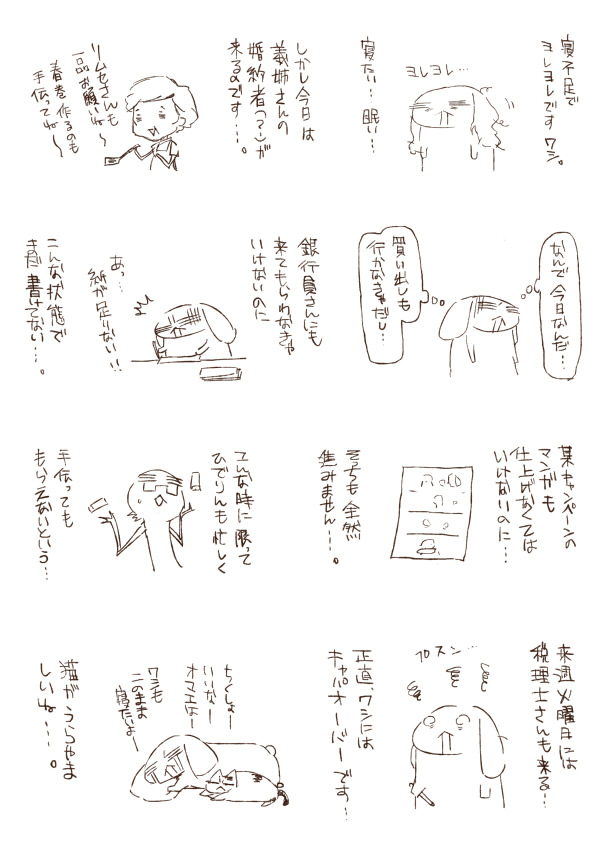 寝不足で
ヨレヨレです ワシ。
ヨレヨレ…
寝たい…眠い…
しかし今日は
義姉さんの
婚約者(?)が
来るのです…。
リムセさんも
一品お願いね～
春巻作るのも
手伝ってね～
なんで今日なんだ…
買い出しも
行かなきゃだし…
銀行員さんにも
来てもらわなきゃ
いけないのに
あっ…
紙が足りない!!
こんな状態で
まだ書けてない…。
某キャンペーンの
マンガも
仕上げなくては
いけないのに…
そっちも全然
進みません…。
こんな時に限って
ひでりんも忙しく
手伝っても
もらえないという…
来週火曜日には
税理士さんも来る…
プスン…
正直、ワシには
キャパオーバーです…
ちくしょー
いいなー
オマエはー
ワシも
このまま
寝たいよー
猫がうらやま
しいね…。